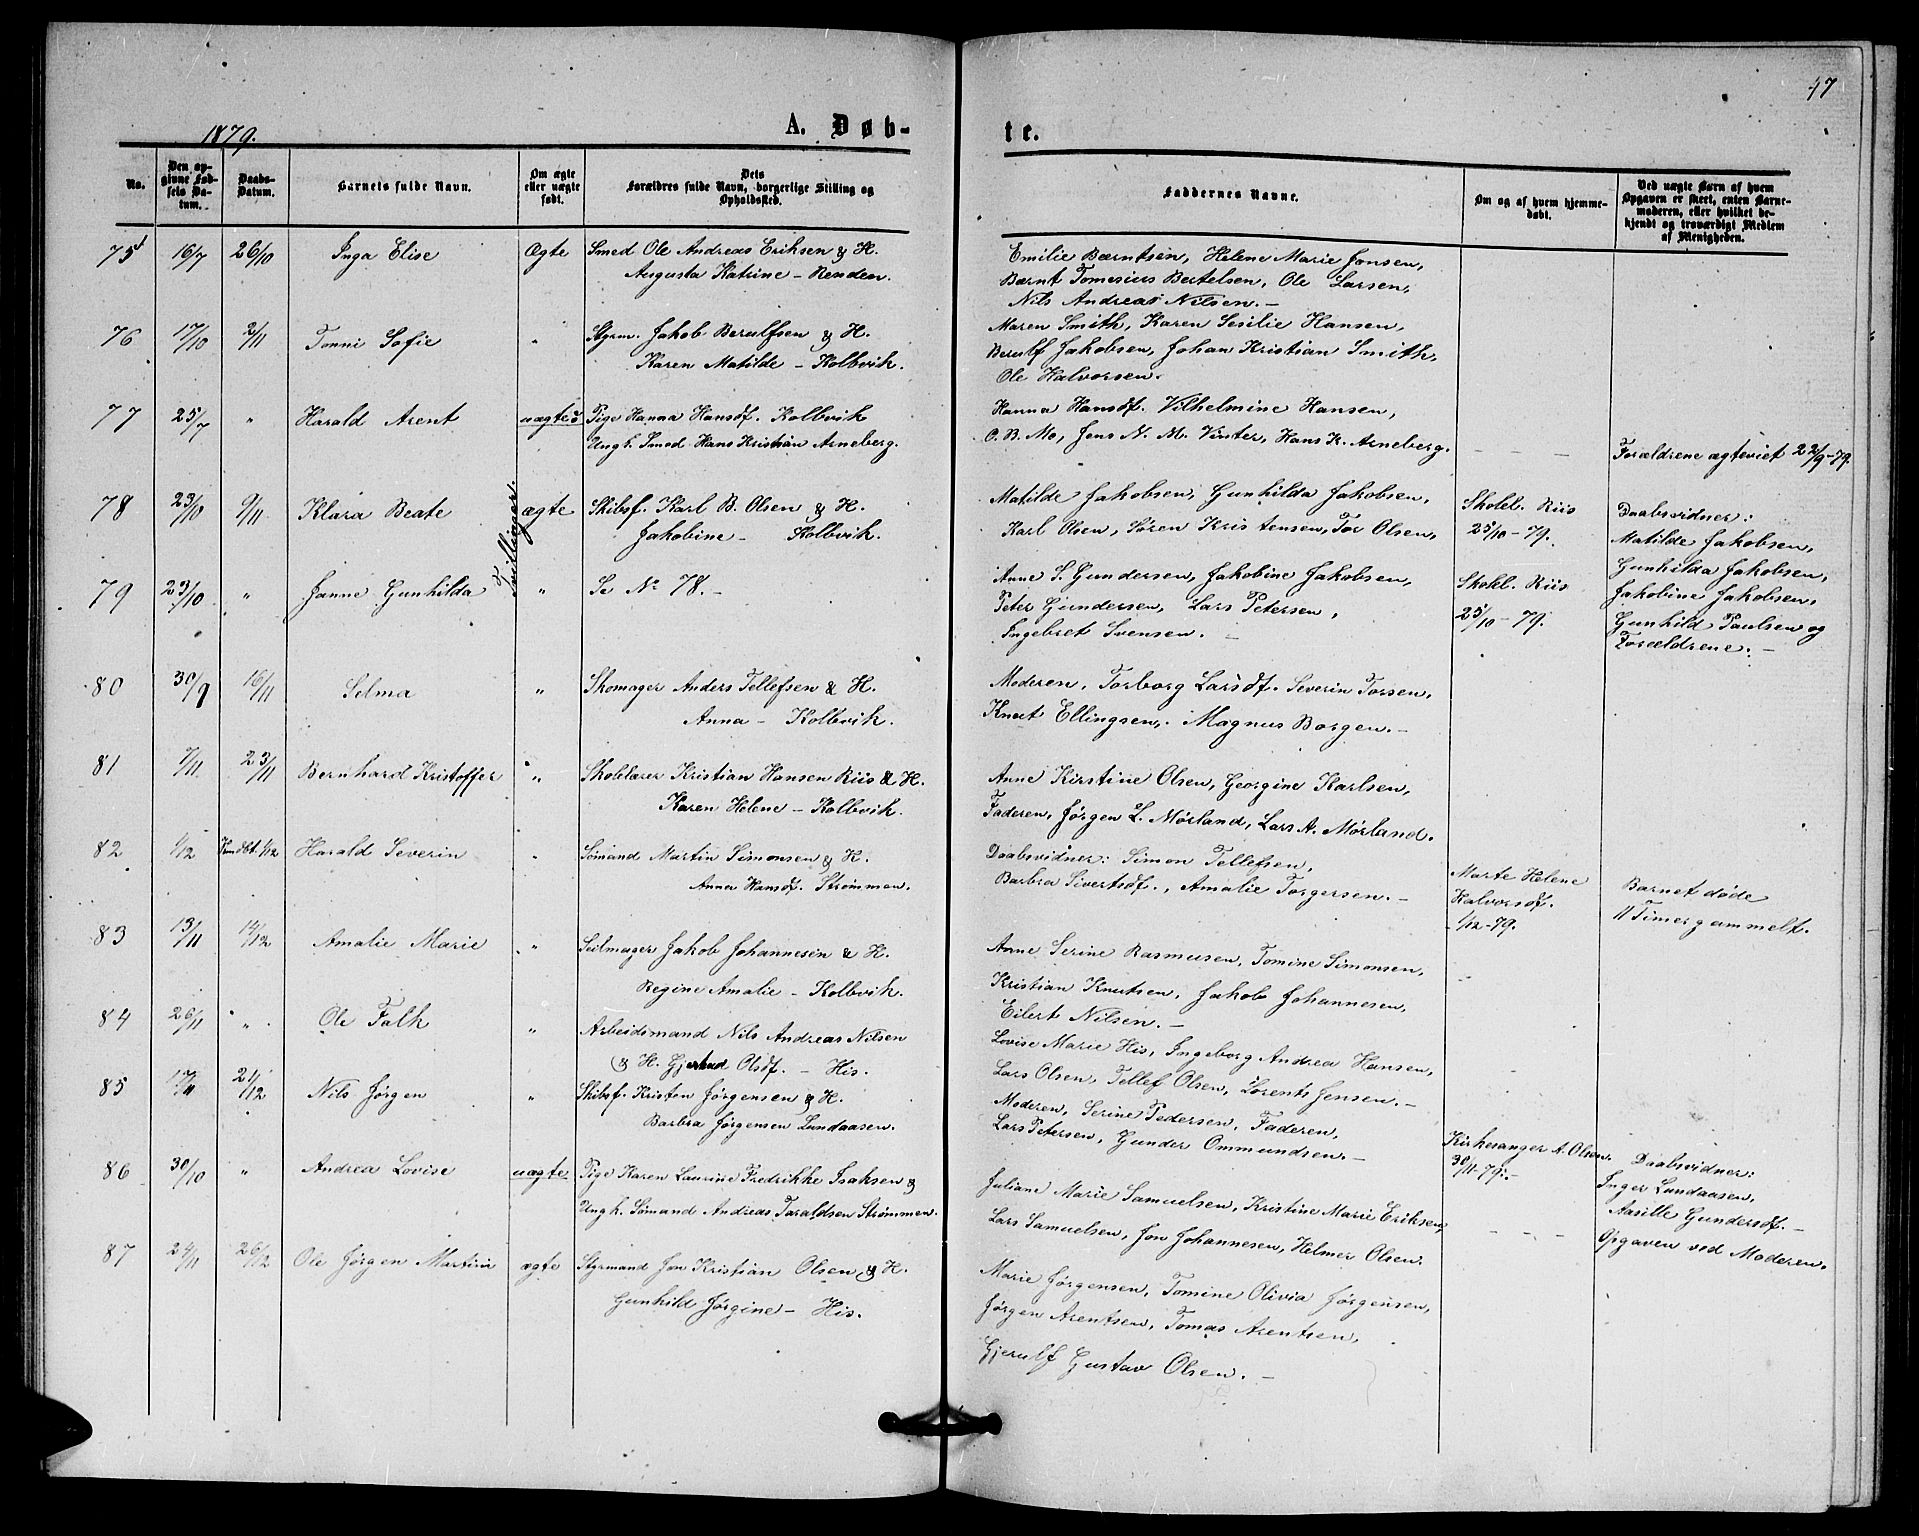 47
1879.
A. Døb-
te.
No.
Den opgivne Fødsels Datum.
Daabs-Datum.
Barnets fulde Navn.
Om ægte eller uægte født.
Dets Forældres fulde Navn, borgerlige Stilling og Opholdssted.
Faddernes Navne.
Om og af hvem hjemmedøbt.
Ved uægte Børn af hvem Opgaven er skeet, enten Barnemoderen, eller hvilket bekjendt og troværdigt Medlem af Menigheden.
75 16/7 26/10 Inga Elise Ægte Smed Ole Andreas Eriksen & H.
Augusta Katrine - Renden.
Emilie Bærntsen, Helene Marie Jansen,
Bærnt Tomesius Bertelsen, Ole Larsen,
Nils Andreas Nilsen. -
76 17/10 2/11 Tonni Sofie " Styrm. Jakob Berulfsen & H.
Karen Matilde - Kolbvik.
Maren Smith, Karen Sesilie Hansen,
Berulf Jakobsen, Johan Kristian Smith,
Ole Halvorsen.
77 25/7 " Harald Arent uægte Pige Hanna Hansdf. Kolbvik
Ungk. Smed Hans Kristian Arneberg.
Hanna Hansdf. Vilhelmine Hansen,
O. B. Mo, Jens N. M. Vinter, Hans K. Arneberg.
Forældrene ægteviet 22/9-79.
78 23/10 9/11 Klara Beate ægte Skibsf. Karl B. Olsen & H.
Jakobine - Kolbvik.
Tvillinger.
Matilde Jakobsen, Gunhilda Jakobsen,
Karl Olsen, Søren Kristensen, Tor Olsen,
Skolel. Riis
25/10-79.
Daabsvidner:
Matilde Jakobsen,
Gunhilda Jakobsen,
Jakobine Jakobsen,
Gunhild Paulsen og
Forældrene. -
79 23/10 " Janne Gunhilda " Se No 78. -
Anne S. Gundersen, Jakobine Jakobsen,
Peter Gundersen, Lars Petersen,
Ingebret Svensen. -
Skolel. Riis
25/10-79.
80 30/9 16/11 Selma " Skomager Anders Tellefsen & H.
Anna - Kolbvik.
Moderen, Torborg Larsdf. Severin Torsen,
Knut Ellingsen, Magnus Borgen. -
81 7/11 23/11 Bernhard Kristoffer " Skolelærer Kristian Hansen Riis & H.
Karen Helene - Kolbvik.
Anne Kirstine Olsen, Georgine Karlsen,
Faderen, Jørgen L. Mørland, Lars A. Mørland.
82 1/12 1/12 Harald Severin " Sømand Martin Simonsen & H.
Anna Hansdf. Strømmen.
Daabsvidner: Simon Tellefsen,
Barbra Sivertsdf., Amalie Torgersen. -
Marte Helene
Halvorsdf.
1/12-79.
Barnet døde
11 Timer gammelt.
83 13/11 14/12 Amalie Marie " Seilmager Jakob Johannesen & H.
Regine Amalie - Kolbvik.
Anne Serine Rasmusen, Tomine Simonsen,
Kristian Knutsen, Jakob Johannesen,
Eilert Nilsen. -
84 26/11 " Ole Falk " Arbeidsmand Nils Andreas Nilsen
& H. Gjertrud Olsdf. - His.
Lovise Marie His, Ingeborg Andrea Hansen,
Lars Olsen, Tellef Olsen, Lorents Jensen. -
85 17/11 21/12 Nils Jørgen " Skibsf. Kristen Jørgensen & H.
Barbra Jørgensen Lundaasen.
Moderen, Serine Pedersen, Faderen,
Lars Petersen, Gunder Ommundsen. -
Kirkesanger A. Olsen.
30/11-79. -
Daabsvidner:
Inger Lundaasen,
Aasille Gundersdf. -
86 30/10 " Andrea Lovise uægte Pige Karen Laurine Fredrikke Isaksen &
Ungk. Sømand Andreas Taraldsen Strømmen.
Juliane Marie Samuelsen, Kristine Marie Eriksen,
Lars Samuelsen, Jon Johannesen, Helmer Olsen.
Opgaven ved Moderen.
87 24/11 26/12 Ole Jørgen Martini ægte Styrmand Jon Kristian Olsen & H.
Gunhild Jørgine - His.
Marie Jørgensen, Tomine Olivia Jørgensen,
Jørgen Arentsen, Tomas Arentsen,
Gjerulf Gustav Olsen. -